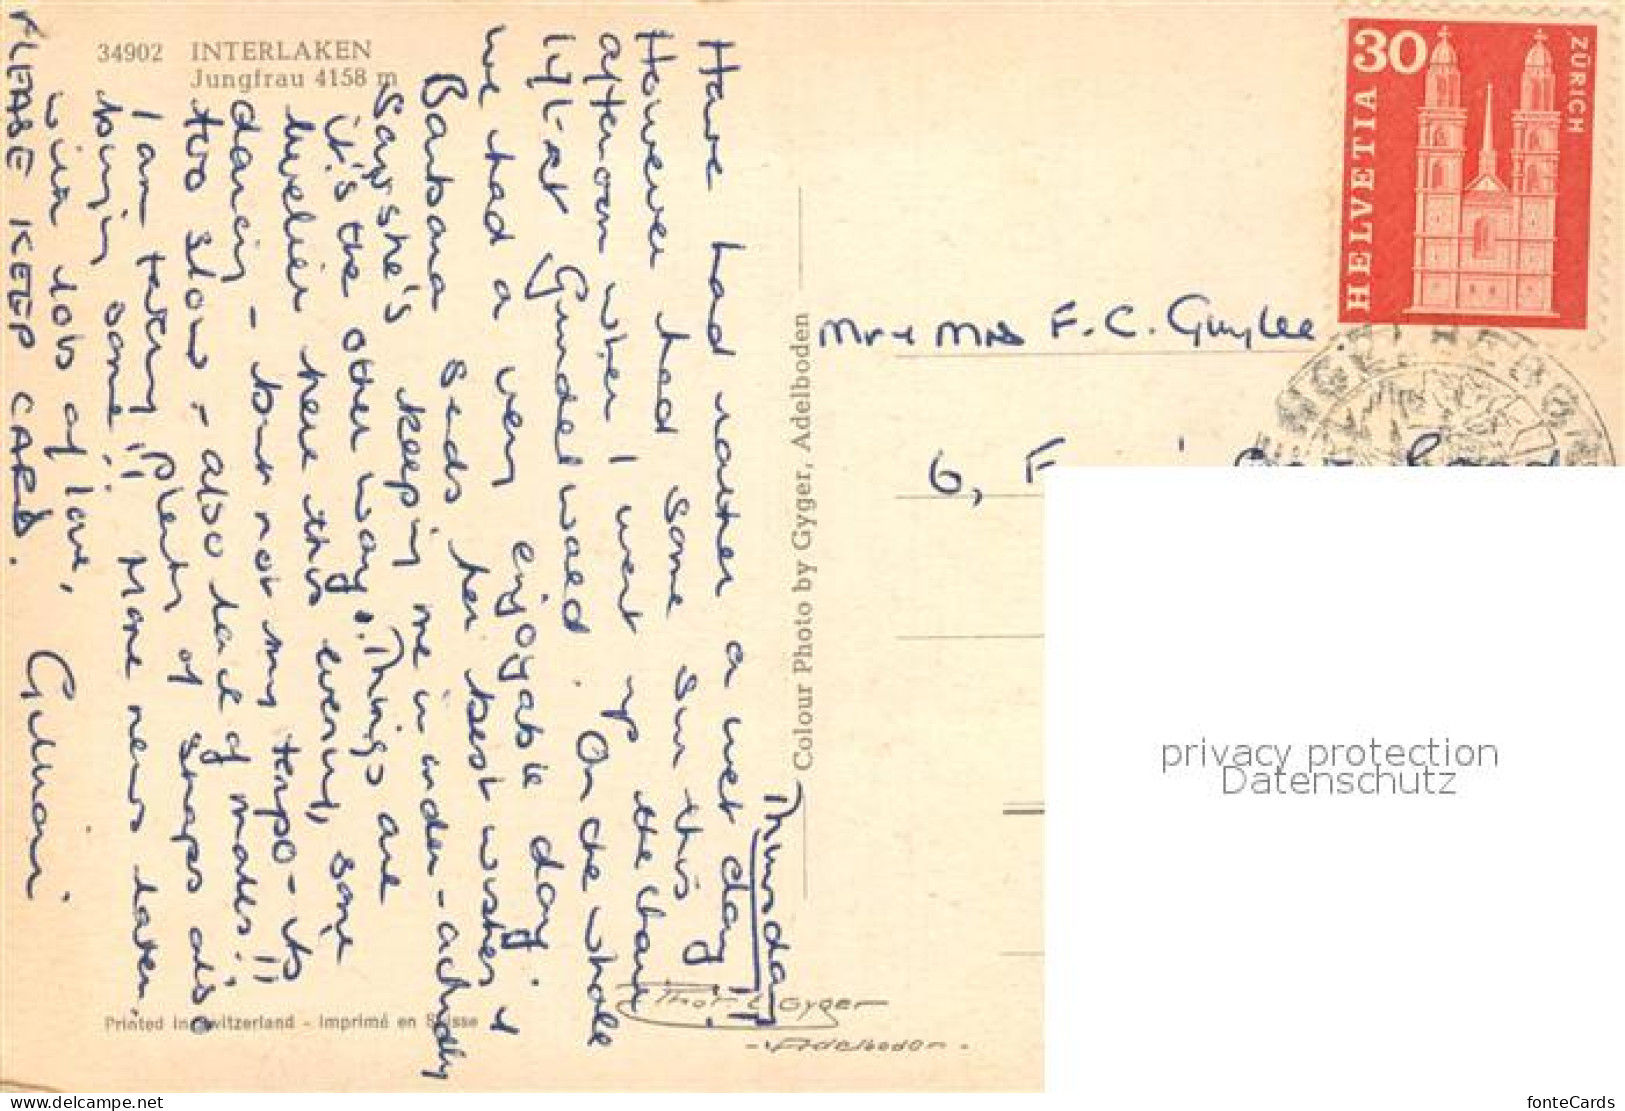 34902 INTERLAKEN
Jungfrau 4158 m
Thursday
Have had rather a wet day!!
However had some sun this
afternoon when I went up the chair
lift at Grundelwald. On the whole
we had a very enjoyable day.
Barbara sends her best wishes &
says she's keeping me in order - actually
it's the other way! Things are
livelier here this evening, some
dancing - but not my tempo - its
too slow - also lack of males!!
I am taking plenty of snaps also
buying some!! More news later.
with lots of love,
Gillian.
PLEASE KEEP CARD.
Colour Photo by Gyger, Adelboden
Printed in Switzerland - Imprimé en Suisse
Thor E Gyger
- Adelboden -
30
HELVETIA
ZÜRICH
Mr & Mrs F. C. Guylee
6,
privacy protection
Datenschutz
fonteCards
akpool.co.uk